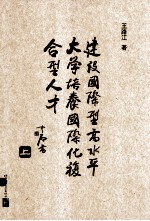 王路江 著
建设国际型高水平
大学培养国际化複
合型人才
上